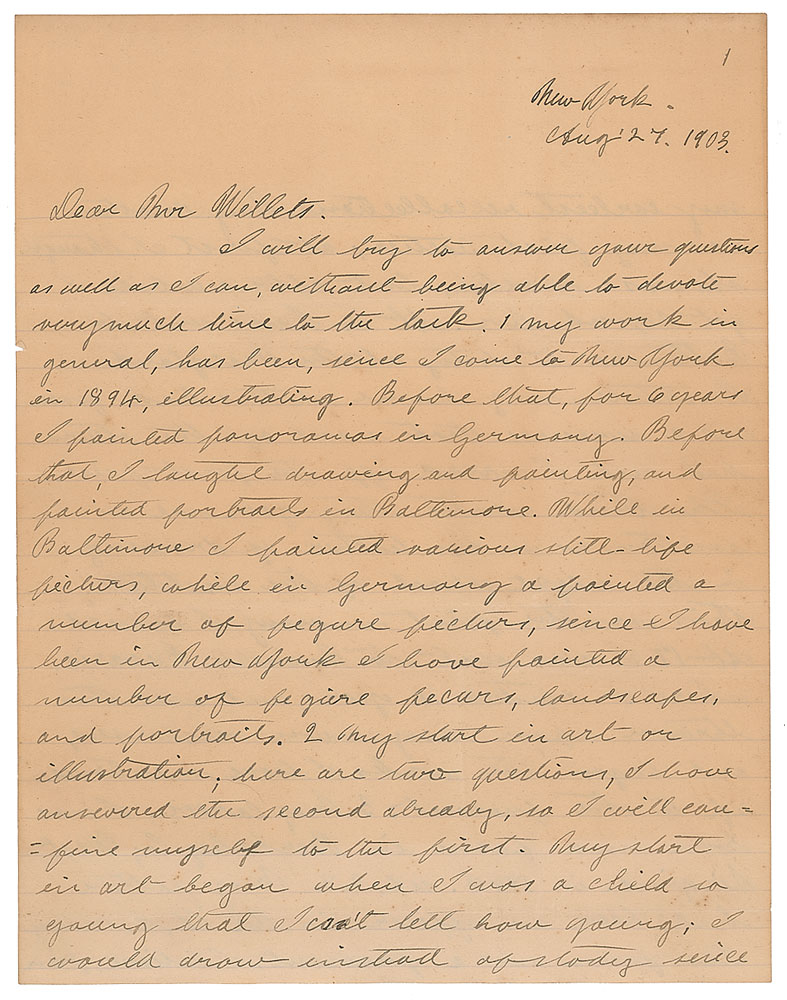 1
New York.
Aug' 27. 1903.
Dear Mr Willets.
I will try to answer your questions
as well as I can, without being able to devote
very much time to the task. 1 my work in
general, has been, since I came to New York
in 1894, illustrating. Before that, for 6 years
I painted panoramas in Germany. Before
that, I taught drawing and painting, and
painted portraits in Baltimore. While in
Baltimore I painted various still-life
picturs, while in Germany I painted a
number of figure picturs, since I have
been in New York I have painted a
number of figure pecurs, landscapes,
and portraits. 2 My start in art or
illustration; here are two questions, I have
answered the second already, so I will con=
=fine myself to the first. My start
in art began when I was a child so
young that I can't tell how young; I
would draw instead of study since